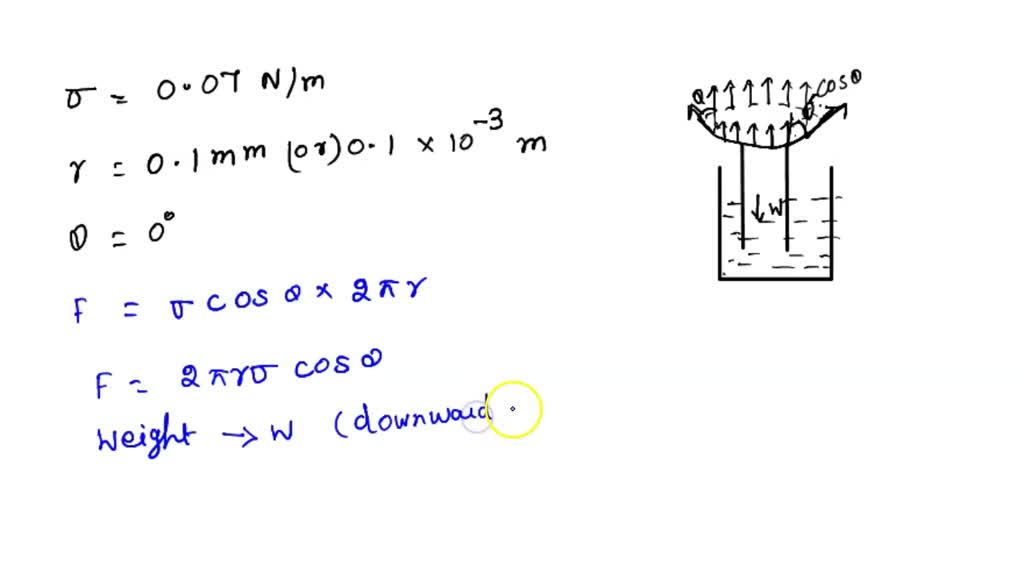 σ = 0.07 N/m
r = 0.1 mm (or) 0.1 × 10⁻³ m
θ = 0°
F = σ cos θ × 2πr
F = 2πrσ cos θ
Weight → W (downward
θ
θ
cosθ
↓ W